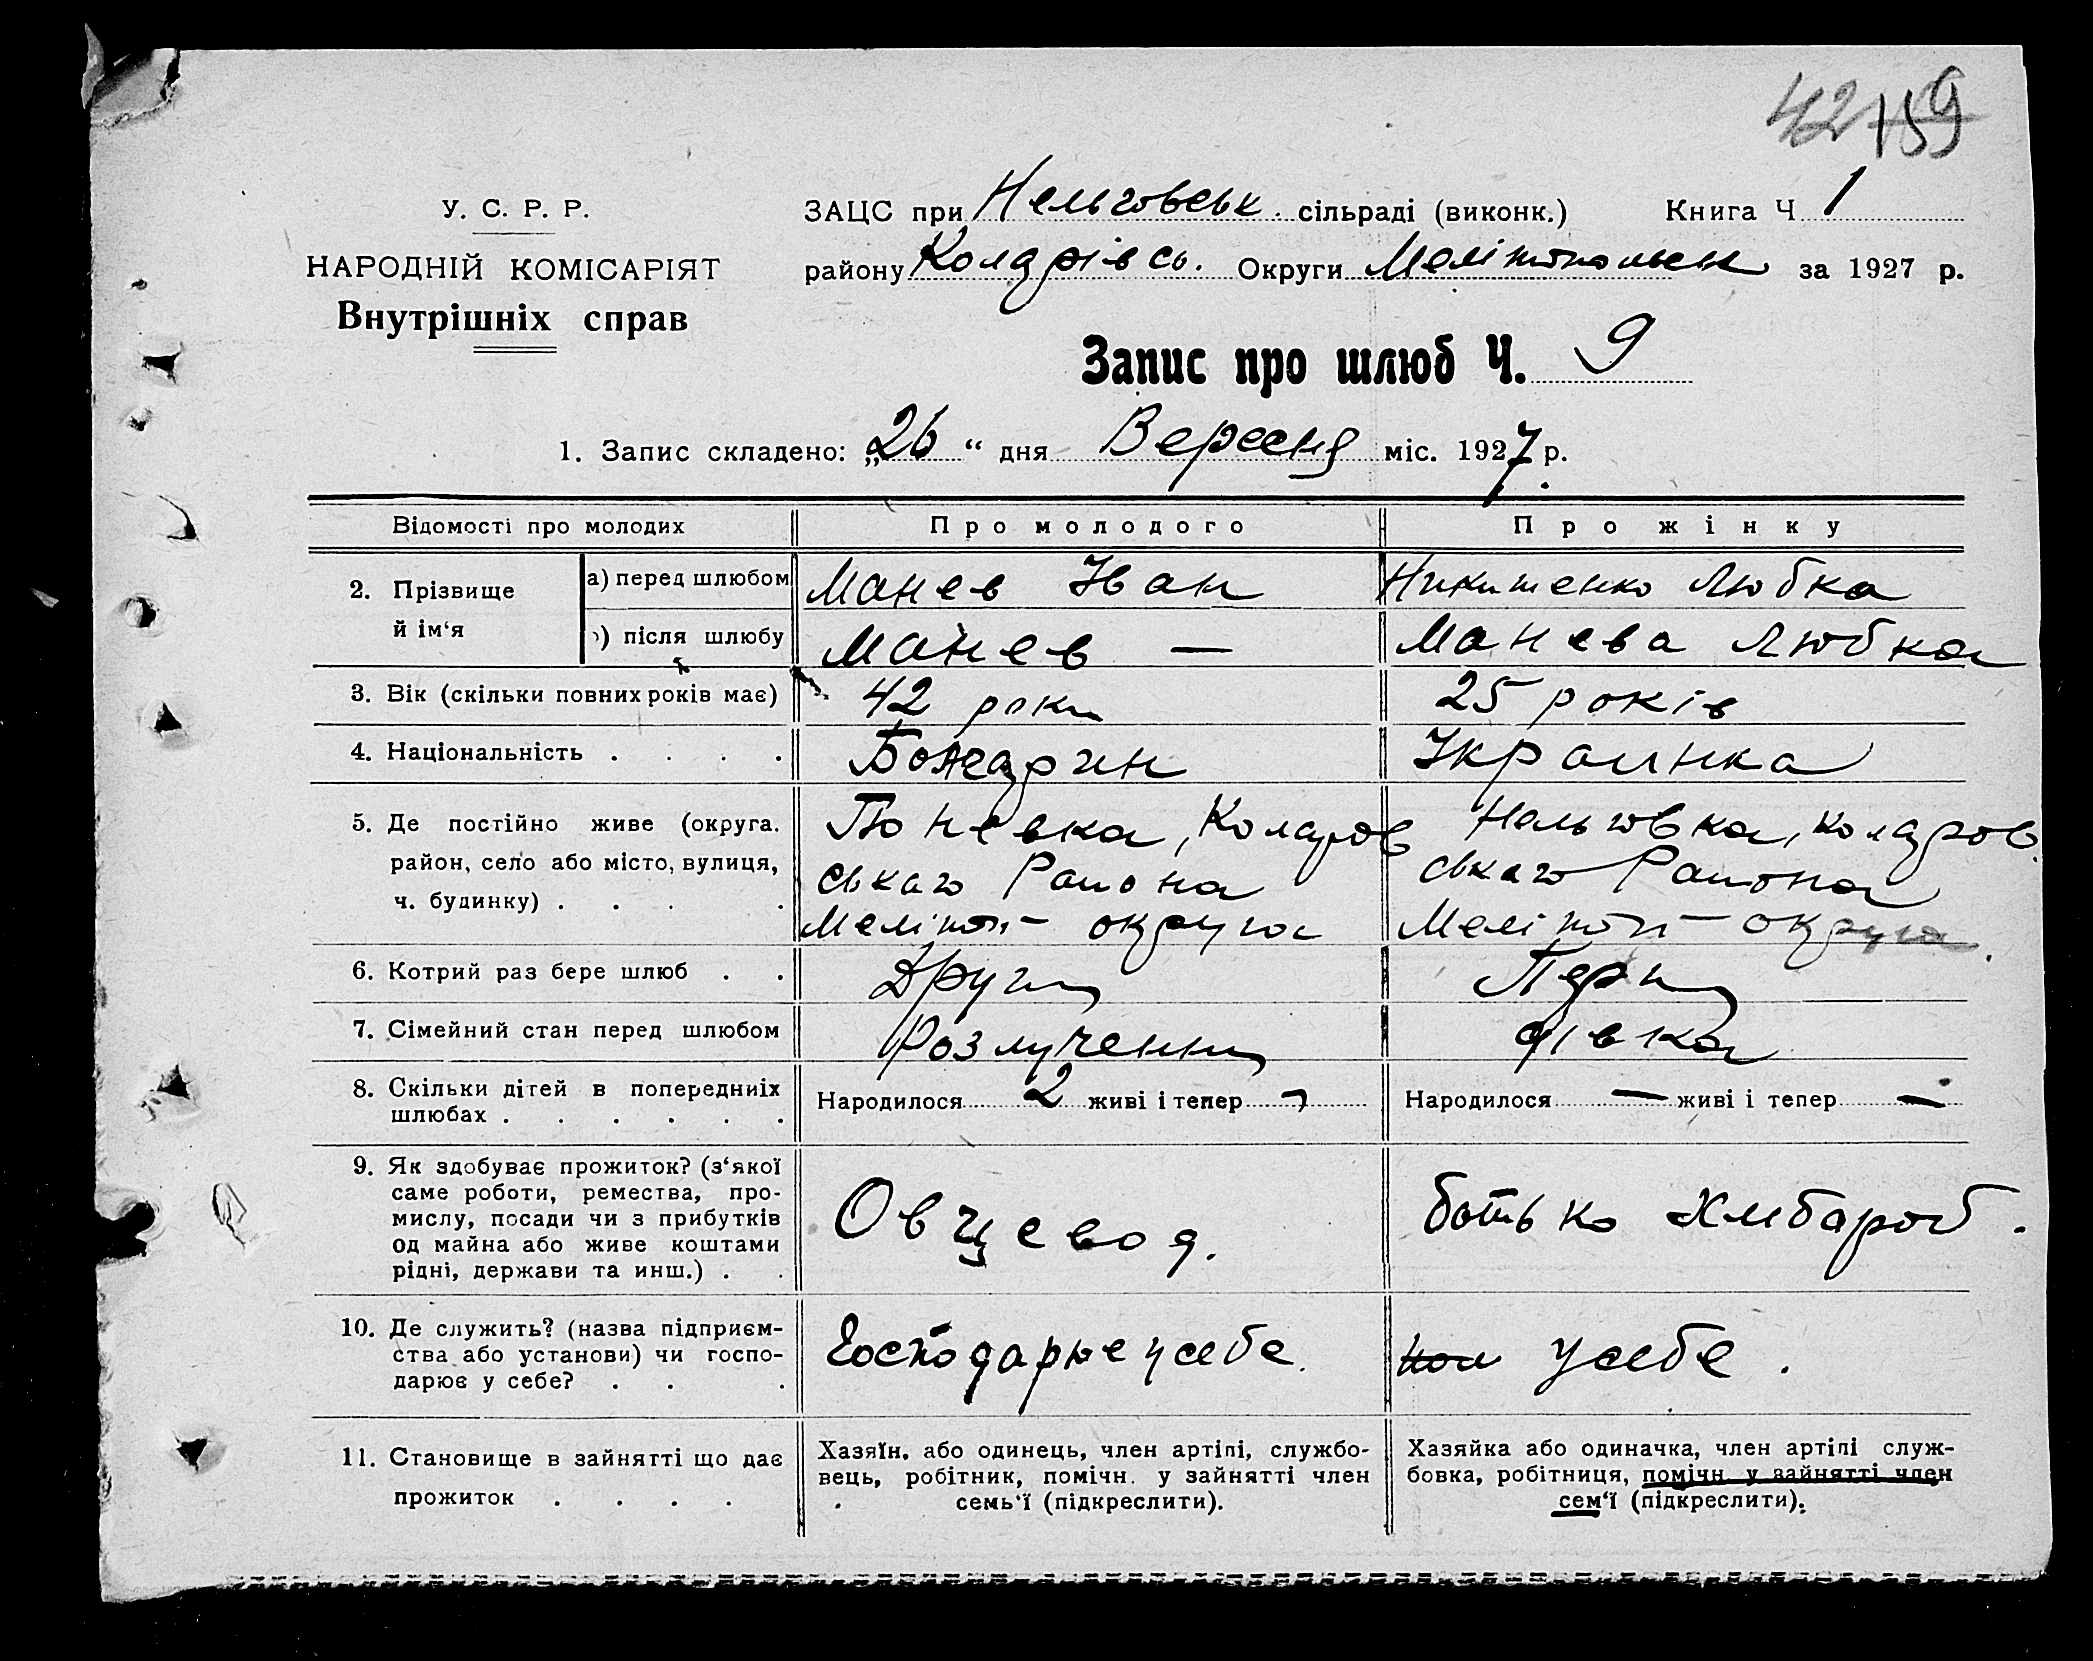 42 159
У. С. Р. Р.
НАРОДНІЙ КОМІСАРІЯТ
Внутрішніх справ
ЗАЦС при Нельговськ. сільраді (виконк.) Книга Ч 1
району Колярівсь. Округи Мелітопольськ за 1927 р.
Запис про шлюб Ч. 9
1. Запис складено: „26“ дня Вересня міс. 1927 р.
Відомості про молодих Про молодого Про жінку
2. Прізвище й ім‘я
а) перед шлюбом Манев Іван Никитенко Любка
) після шлюбу Манев — Манева Любка
3. Вік (скільки повних років має) 42 роки 25 років
4. Національність . . . . Болгарин Украінка
5. Де постійно живе (округа.
район, село або місто, вулиця,
ч. будинку) . . . .
Коларов
ського Раиона
Мелітоп– округи
Нельговка, Коляров.
ського Раиона
Мелітоп– округи.
6. Котрий раз бере шлюб . . Други Перш
7. Сімейний стан перед шлюбом Розлучении дівка
8. Скільки дітей в попередниіх
шлюбах . . . . . .
Народилося 2 живі і тепер
Народилося — живі і тепер —
9. Як здобуває прожиток? (з‘якої
саме роботи, ремества, про-
мислу, посади чи з прибутків
од майна або живе коштами
рідні, держави та инш.) . .
Овцевод.
батько Хлібароб.
10. Де служить? (назва підприєм-
ства або установи) чи госпо-
дарює у себе? . . .
Господарює у себе.
у себе.
11. Становище в зайнятті що дає
прожиток . . . .
Хазяїн, або одинець, член артілі, службо-
вець, робітник, помічн. у зайнятті член
семь‘ї (підкреслити).
Хазяйка або одиначка, член артілі служ-
бовка, робітниця, помічн. у зайнятті член
сем‘ї (підкреслити).